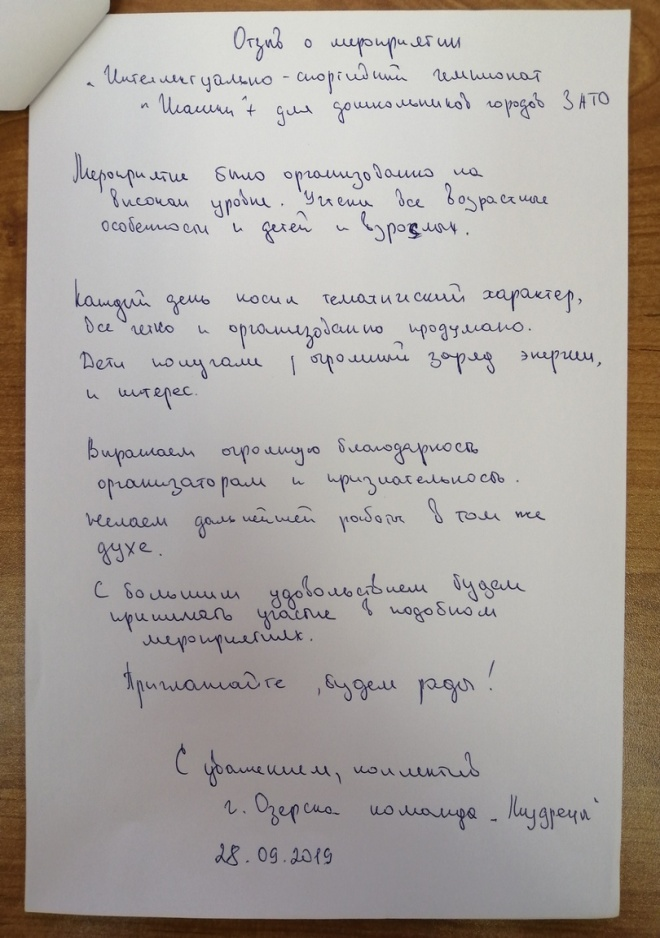 Отзыв о мероприятии
„Интеллектуально-спортивный чемпионат
"Шашки"+ для дошкольников городов ЗАТО
Мероприятие было организованно на
высоком уровне. Учтены все возрастные
особенности и детей и взрослых.
Каждый день носил тематический характер,
все четко и организованно продумано.
Дети получали , огромный заряд энергии,
и интерес.
Выражаем огромную благодарность
организаторам и признательность.
Желаем дальнейшей работы в том же
духе.
С большим удовольствием будем
принимать участие в подобном
мероприятиях.
Приглашайте, будем рады!
С уважением, коллектив
г. Озерска команда „Мудрецы"
28.09.2019